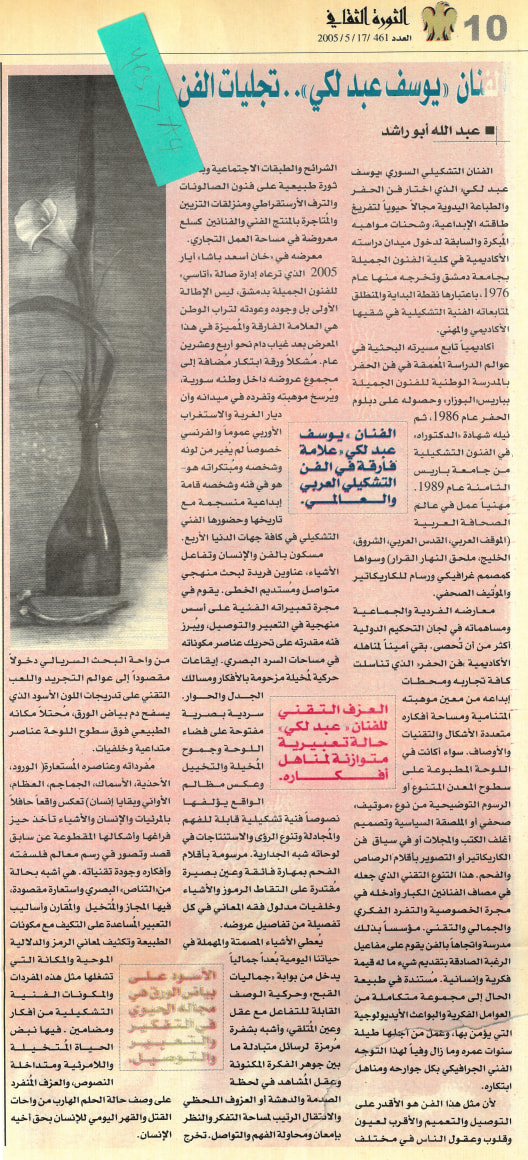 10
الثورة الثقافي
العدد 461 /17 /5 /2005
الفنان «يوسف عبد لكي».. تجليات الفن
عبد الله أبو راشد
الفنان التشكيلي السوري «يوسف
عبد لكي» الذي اختار فن الحفر
والطباعة اليدوية مجالاً حيوياً لتفريغ
طاقته الإبداعية، وشحنات مواهبه
المبكرة والسابقة لدخول ميدان دراسته
الأكاديمية في كلية الفنون الجميلة
بجامعة دمشق وتخرجه منها عام
1976، باعتبارها نقطة البداية والمنطلق
لمتابعاته الفنية التشكيلية في شقيها
الأكاديمي والمهني.
أكاديمياً تابع مسيرته البحثية في
عوالم الدراسة المعمقة في فن الحفر
بالمدرسة الوطنية للفنون الجميلة
بباريس «البوزار» وحصوله على دبلوم
الحفر عام 1986، ثم
نيله شهادة «الدكتوراه»
في الفنون التشكيلية
من جامعة باريس
الثامنة عام 1989.
مهنياً عمل في عالم
الصحافة العربية
(الموقف العربي، القدس العربي، الشروق،
الخليج، ملحق النهار القرار) وسواها
كمصمم غرافيكي ورسام للكاريكاتير
والموتيف الصحفي.
معارضه الفردية والجماعية
ومساهماته في لجان التحكيم الدولية
أكثر من أن تُحصى. بقي أميناً لمناهله
الأكاديمية «فن الحفر» الذي تناسلت
كافة تجاربه ومحطات
إبداعه من معين موهبته
المتنامية ومساحة أفكاره
متعددة الأشكال والتقنيات
والأوصاف. سواء أكانت في
اللوحة المطبوعة على
سطوح المعدن المتنوع أو
الرسوم التوضيحية من نوع «موتيف»
صحفي أو الملصقة السياسية وتصميم
أغلف الكتب والمجلات أو في سياق فن
الكاريكاتير أو التصوير بأقلام الرصاص
والفحم. هذا التنوع التقني الذي جعله
في مصاف الفنانين الكبار وأدخله في
مجرة الخصوصية والتفرد الفكري
والجمالي والتقني. مؤسساً بذلك
مدرسة واتجاهاً بالفن يقوم على مفاعيل
الرغبة الصادقة بتقديم شيء ما له قيمة
فكرية وإنسانية. مُستندة في طبيعة
الحال إلى مجموعة متكاملة من
العوامل الفكرية والبواعث الأيديولوجية
التي يؤمن بها، وعمل من أجلها طيلة
سنوات عمره وما زال وفياً لهذا التوجه
الفني الجرافيكي بكل جوارحه ومناهل
ابتكاره.
لأن مثل هذا الفن هو الأقدر على
التوصيل والتعميم والأقرب لعيون
وقلوب وعقول الناس في مختلف
الفنان «يوسف
عبد لكي» علامة
فارقة في الفن
التشكيلي العربي
والعالمي.
الشرائح والطبقات الاجتماعية
ثورة طبيعية على فنون الصالونات
والترف الأرستقراطي ومنزلقات التزيين
والمُتاجرة بالمنتج الفني والفنانين كسلع
معروضة في مساحة العمل التجاري.
معرضه في «خان أسعد باشا» أيار
2005 الذي ترعاه إدارة صالة «أتاسي»
للفنون الجميلة بدمشق، ليس الإطالة
الأولى بل وجوده وعودته لتراب الوطن
هي العلامة الفارقة والمُميزة في هذا
المعرض بعد غياب دام نحو أربع وعشرين
عام. مُشكلاً ورقة ابتكار مُضافة إلى
مجموع عروضه داخل وطنه سورية،
ويُرسخ موهبته وتفرده في ميدانه وأن
ديار الغربة والاستغراب
الأوربي عموماً والفرنسي
خصوصاً لم يُغير من لونه
وشخصه ومُبتكراته هو-
هو في فنه وشخصه قامة
إبداعية منسجمة مع
تاريخها وحضورها الفني
التشكيلي في كافة جهات الدنيا الأربع.
مسكون بالفن والإنسان وتفاعل
الأشياء، عناوين فريدة لبحث منهجي
متواصل ومُستديم الخطى. يقوم في
مجرة تعبيراته الفنية على أسس
منهجية في التعبير والتوصيل، ويبرز
فنه مقدرته على تحريك عناصر مكوناته
في مساحات السرد البصري. إيقاعات
حركية لمخيلة مزحومة بالأفكار ومسالك
الجدل والحوار.
سردية بصرية
مفتوحة على فضاء
اللوحة وجموح
المُخيلة والتخييل
وعكس مظالم
الواقع يؤلفها
نصوصاً فنية تشكيلية قابلة للفهم
والمجادلة وتنوع الرؤى والاستنتاجات في
لوحاته شبه الجدارية. مرسومة بأقلام
الفحم بمهارة فائقة وعين بصيرة
مقتدرة على التقاط الرموز والأشياء
وخلفيات مدلول فقه المعاني في كل
تفصيلة من تفاصيل عروضه.
يُعطي الأشياء المصمتة والمهملة في
حياتنا اليومية بُعداً جمالياً
يدخل من بوابة «جماليات
القبح» وحركية الوصف
القابلة للتفاعل مع عقل
وعين المتلقي، وأشبه بشفرة
مُرمزة لرسائل متبادلة ما
بين جوهر الفكرة المكنونة
وعقل المشاهد في لحظة
الصدمة والدهشة أو العزوف اللحظي
والانتقال الرتيب لمساحة التفكر والنظر
بإمعان ومحاولة الفهم والتواصل. تخرج
العزف التقني
للفنان «عبد لكي»
حالة تعبيرية
متوازنة لمناهل
أفكاره.
من واحة البحث السريالي دخولاً
مقصوداً إلى عوالم التجريد واللعب
التقني على تدريجات اللون الأسود الذي
يسفح دم بياض الورق، مُحتلاً مكانه
الطبيعي فوق سطوح اللوحة عناصر
متداعية وخلفيات.
مُفرداته وعناصره المستعارة( الورود،
الأحذية، الأسماك، الجماجم، العظام،
الأواني وبقايا إنسان) تعكس واقعاً حافلاً
بالمرئيات والإنسان والأشياء تأخذ حيز
فراغها وأشكالها المقطوعة عن سابق
قصد وتصور في رسم معالم فلسفته
وأفكاره وجودة تقنياته. هي أشبه بحالة
من«التناص» البصري واستعارة مقصودة،
فيها المجاز والمتخيل والمقارن وأساليب
التعبير المساعدة على التكيف مع مكونات
الطبيعة وتكثيف معاني الرمز والدلالية
الموحية والمكانة التي
تشغلها مثل هذه المفردات
والمكونات الفنية
التشكيلية من أفكار
ومضامين. فيها نبض
الحياة المتخيلة
واللامرئية ومتداخلة
النصوص، والعزف المُنفرد
على وصف حالة الحلم الهارب من واحات
القتل والقهر اليومي للإنسان بحق أخيه
الإنسان.
الأسود على
بياض الورق هي
مجاله الحيوي
في التفكير
والتعبير
والتوصيل